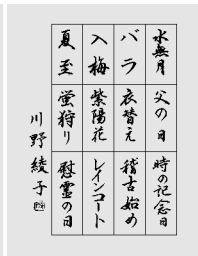 水無月
父の日
時の記念日
バラ
衣替え
稽古始め
入梅
紫陽花
レインコート
夏至
蛍狩り
慰霊の日
川野綾子